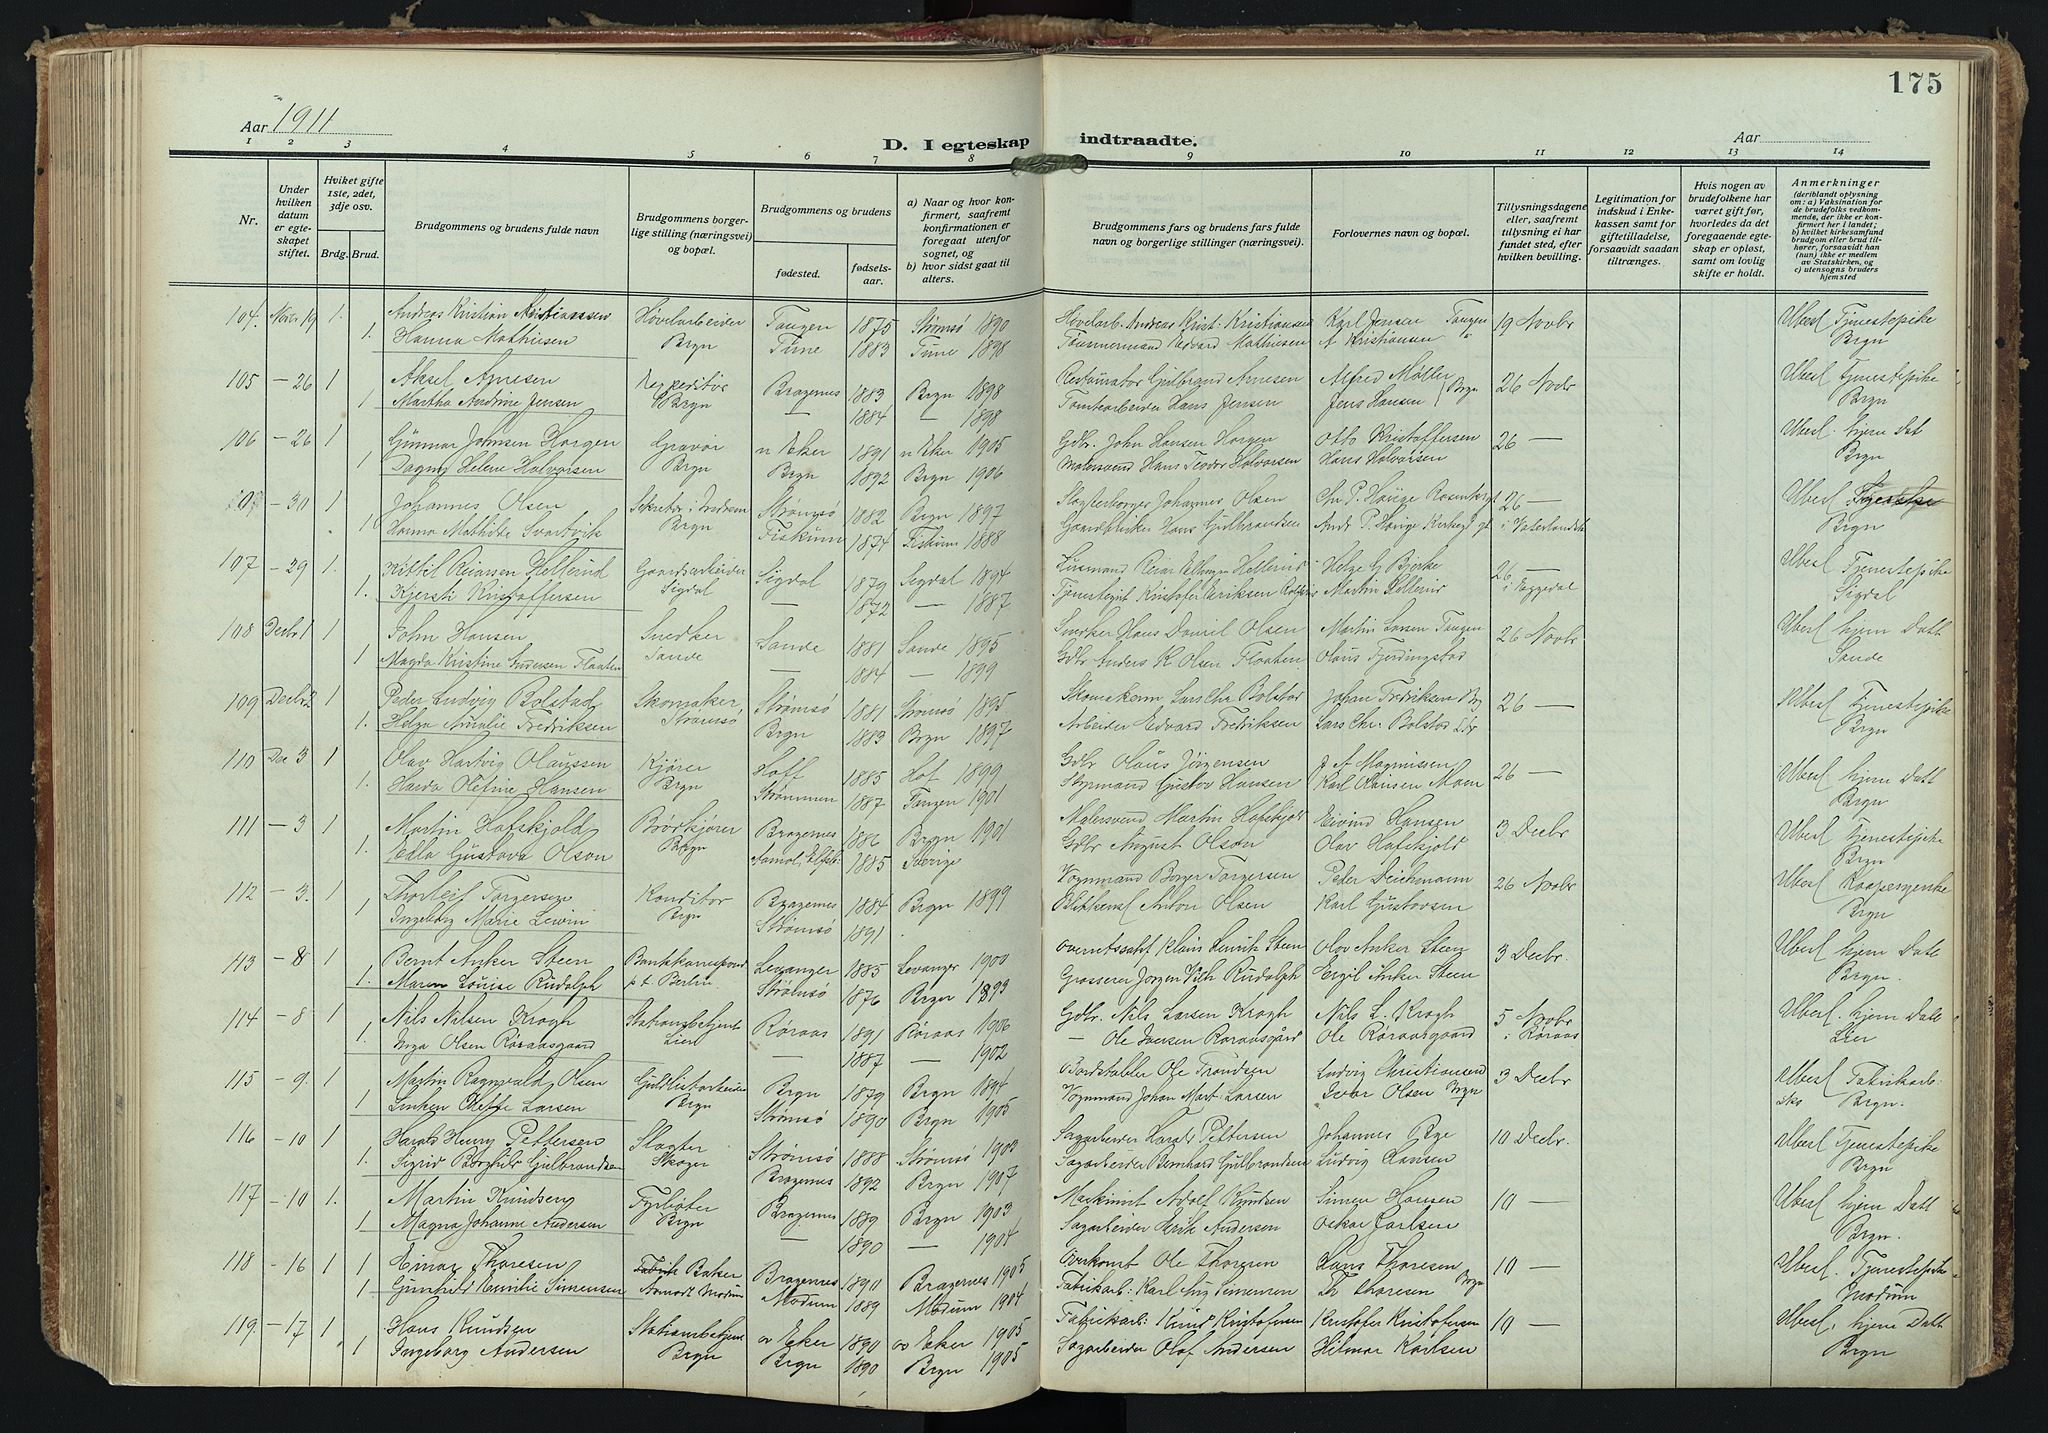 175
Aar 1911
D. I egteskap indtraadte.
Aar
1 2 3 4 5 6 7 8 9 10 11 12 13 14
Nr.
Under hvilken datum er egteskapet stiftet.
Hviket gifte 1ste, 2det, 3dje osv.
Brdg. Brud.
Brudgommens og brudens fulde navn
Brudgommens borgerlige stilling (næringsvei) og bopæl.
Brudgommens og brudens
fødested.
fødselsaar.
a) Naar og hvor konfirmert, saafremt konfirmationen er foregaat utenfor sognet, og
b) hvor sidst gaat til alters.
Brudgommens fars og brudens fars fulde navn og borgerlige stillinger (næringsvei).
Forlovernes navn og bopæl.
Tillysningsdagene eller, saafremt tillysning ei har fundet sted, efter hvilken bevilling.
Legitimation for indskud i Enkekassen samt for giftetilladelse, forsaavidt saadan tiltrænges.
Hvis nogen av brudefolkene har været gift før, hvorledes da det foregaaende egteskap er opløst, samt om lovlig skifte er holdt.
Anmerkninger (deriblandt oplysning om: a) Vaksination for de brudefolks vedkommende, der ikke er konfirmert her i landet; b) hvilket kirkesamfund brudgom eller brud tilhører, forsaavidt han (hun) ikke er medlem av Statskirken, og c) utensogns bruders hjemsted
104. Novbr 19 1. Andreas Kristian Kristianssen Høvelarbeider Tangen 1875 Strømsø 1890 Høvelarb. Andreas Krist: Kristiansen Karl Jensen Tangen 19 Novbr Ubesl Tjenestepike
1. Hanna Mathiesen Brgn Tune 1883 Tune 1898 Tømmermand Edvard Mathiesen A Kristiansen " Brgn
105 - 26 1 Aksel Arnesen Expeditør Bragernes 1883 Brgn 1898 Restauratør Gulbrand Arnesen Alfred Møller 26 Novbr Ubesl Tjenestepike
1 Martha Andrine Jensen Brgn — 1884 — 1898 Tomtearbeider Hans Jensen Jens Hansen Brgn Brgn
106 - 26 1 Gunnar Johnsen Horgen Gravør n Eker 1891 n Eker 1905 Gdbr. John Hansen Horgen Otto Kristoffersen 26 — Ubesl. hjem Dat
1 Dagny Helene Halvorsen Brgn Brgn 1892 Brgn 1906 Malersvend Hans Teodor Halvorsen Hans Halvorsen Brgn
107 - 30 1 Johannes Olsen Strømsø 1882 Brgn 1897 Johannes Olsen Chr P. Hauge 26 — Ubesl
1 Hanna Mathilde Svartvik Brgn Fiskum 1874 Fiskum 1888 Hans Gulbrandsen Andr P. Hauge Brgn
107 - 29 1. Kittil Reiersen Hellerud Gaardsarbeider Sigdal 1879 Sigdal 1894 Hellerud Helge G Bjerke 26 — Ubesl Tjenestepike
1. Kjersti Kristoffersen Sigdal — 1872 — 1887 Kristofer Eriksen Martin Hellerud i Eggedal Sigdal
108 Decbr 1 1 John Hansen Snedker Sande 1881 Sande 1895 Snedker Hans Daniel Olsen Martin Larsen Tangen 26 Novbr Ubesl hjem Datt
1 Magda Kristine Andersen Flaaten Sande — 1884 — 1899 Gdbr Anders K Olsen Flaaten Olaus Fjerdingstad Sande
109 Decbr 2 1 Peder Ludvig Bolstad Skomaker, Strømsø 1881 Strømsø 1895 Lars Chr Bolstad Johan Fredriksen Brg 26 — Ubesl Tjenestepike
1. Helga Amalie Fredriksen Strømsø Brgn 1883 Brgn 1897 Arbeider Edvard Fredriksen Lars Chr Bolstad Brgn
110 Dec 3 1 Olav Hartvig Olaussen Kjører Hoff 1885 Hof 1899 Gdbr Olaus Jørgensen J A Magnussen 26 — Ubesl hjem Datt
1. Harda Olefine Hansen Brgn Strømmen 1887 Tangen 1901 Vognmand Gustav Hansen Karl Hansen Moen Brgn
111 - 3 1 Martin Hafskjold Brgn Bragernes 1886 Brgn 1901 Malersvend Martin Hafskjold Eivind Hansen 3 Decbr Ubesl Tjenestepike
1. Edla Gustava Olson 1885 Sverige Gdbr August Olson Olav Hafskjold Brgn
112 - 3. 1 Thorleif Torgersen Konditor Bragernes 1884 Brgn 1899 Vognmand Borger Torgersen Peder Deichmann 26 Novbr Ubesl
1, Ingeborg Marie Lewin Brgn Strømsø 1891 Anton Olsen Karl Gustavsen Brgn
113 - 8 1 Bernt Anker Steen Levanger 1885 Levanger 1900 Klaus Henrik Steen Olav Anker Steen 3 Decbr. Ubesl hjem Datt
1. Maren Louise Rudolph pt Berlin. Strømsø 1876 Brgn 1893 Grosserer Jørgen Vilh Rudolph Egil Anker Steen Brgn.
114 - 8 1. Nils Nilsen Krogh Stationsbetjent Røraas 1891 Røraas 1906 Gdbr. Nils Larsen Krogh Nils L. Krogh 5 Novbr Ubesl. hjem Datt
1. Inga Olsen Røraasgaard Lier — 1887 — 1902 — Ole Iversen Røraasgård Ole Røraasgaard i Røraas Lier
115 - 9. 1 Martin Ragnvald Olsen Guldlistarbeider Brgn 1879 Brgn 1894 Bordstabler Ole Trondsen Ludvig Christiansen 3 Decbr Ubesl Fabrikarb.
1 Linken Oleffe Larsen Brgn Strømsø 1890 Brgn 1905 Vognmand Johan Mart. Larsen Iver Olsen Brgn Sko Brgn.
116 - 10 1 Harald Henry Pettersen Slagter Strømsø 1888 Strømsø 1903 Sagarbeider Harald Pettersen Johannes Bye 10 Decbr. Ubesl Tjenestepike
1. Sigrid Borghild Gulbrandsen Skoger Bragernes 1892 Brgn 1907 Sagarbeider Bernhard Gulbrandsen Ludvig Hansen Brgn
117 - 10 1. Martin Knudsen Fyrbøter Bragernes 1889 Brgn 1903 Maskinmt Adolf Knudsen Simen Hansen 10 — Ubesl hjem Datt
1 Magna Johanne Andersen Brgn — 1890 — 1904 Sagarbeider Erik Andersen Oskar Carlsen Brgn.
118 - 16 1 Einar Thoresen Baker Bragernes 1890 Bragernes 1905 Ole Thoresen Hans Thoresen 10 — Ubesl. Tjenestepike
1 Gunhild Emilie Simensen Aamodt Modum Modum 1889 Modum 1904 Fabrikarb: Karl Aug Simensen Th Thoresen Brgn Modum
119. - 17 1 Hans Knudsen Stationsbetjent øv Eker 1890 øv Eker 1905 Fabrikarb: Knud Kristofersen Kristofer Kristofersen 10 — Ubesl, hjem Datt
1 Ingeborg Andersen Brgn Brgn 1890 Brgn 1905 Sagarbeider Olaf Andersen Hilmar Karlsen Brgn